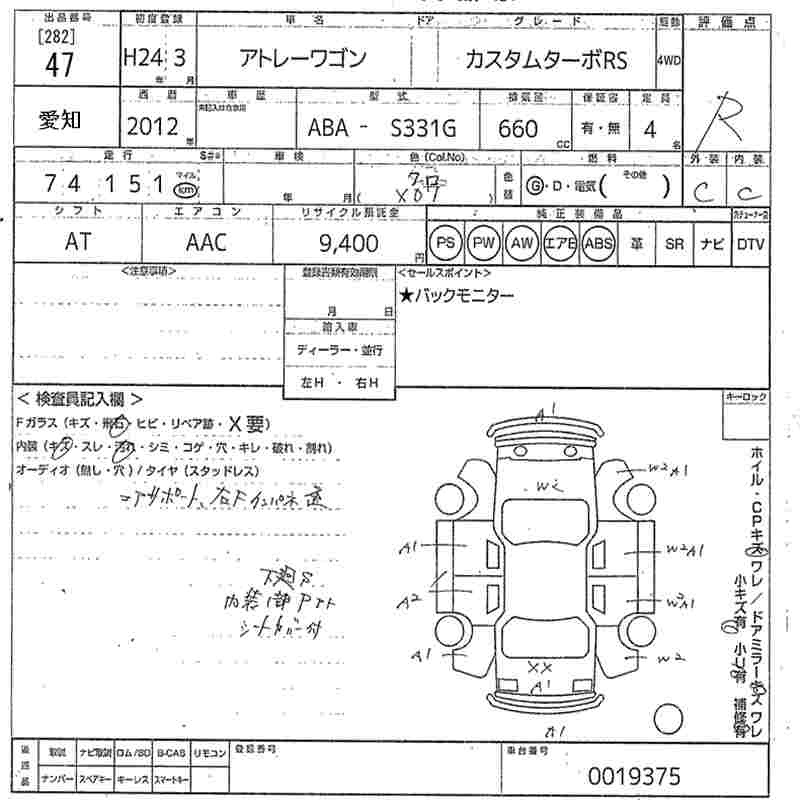 出品番号 初度登録 車名 ドア グレード 駆動 評価点
[282]
47 H24 3 アトレーワゴン カスタムターボRS 4WD
年 月
西暦 車歴 型式 排気量 保証書 定員 R
愛知 2012 ABA - S331G 660 有・無 4
年 CC 名
走行 車検 色(Col.No) 燃料 外装 内装
74 151 マイル km 年 月 ( X07 ) 色替 G・D・電気 (その他 ) C C
シフト エアコン リサイクル預託金 純正装備品
AT AAC 9,400 円 PS PW AW エアB ABS 革 SR ナビ DTV
<注意事項> 登録書類有効期限 <セールスポイント>
★バックモニター
月 日
輸入車
ディーラー・並行
左H ・ 右H
<検査員記入欄> キーロック
Fガラス (キズ・飛石・ヒビ・リペア跡・X要)
内装 (キズ・スレ・汚れ・シミ・コゲ・穴・キレ・破れ・割れ)
オーディオ (無し・穴) / タイヤ (スタッドレス)
コアサポート、右Fインパネ
下廻S
内装1部
シートカバー付
A1
W2 A1
W2
A1 W2A1
A2 W2A1
A1 W2
XX
A1
A1
ホイル・CPキズワレ/ドアミラーキズワレ
小キズ有 小U有 補修有
後送品 取説 ナビ取説 ロム/SD B-CAS リモコン 登録番号 車台番号
ナンバー スペアキー キーレス スマートキー 0019375